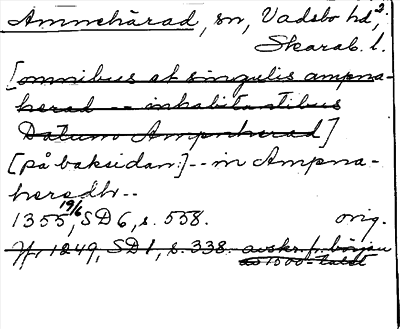 Amnehärad, sn, Vadsbo hd,²
Skarab. l.
[omnibus et singulis ampna-
herad -- inhabitantibus
Datum Ampnherad]
[på baksidan:] -- in Ampna-
heradh --
1355 19/6, SD 6, s. 558. orig.
Jfr 1249, SD 1, s. 338. avskr. fr. början
av 1500-talet